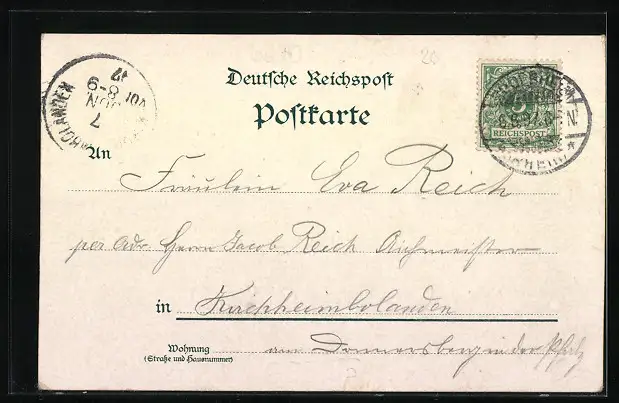 26
Deutsche Reichspost
Postkarte
REICHSPOST
8-9
An
Fräulein Eva Reich
per Adr Herrn Jacob Reich Aichmeister
in Kirchheimbolanden
Wohnung am Donnersberg in der Pfalz
(Straße und Hausnummer)